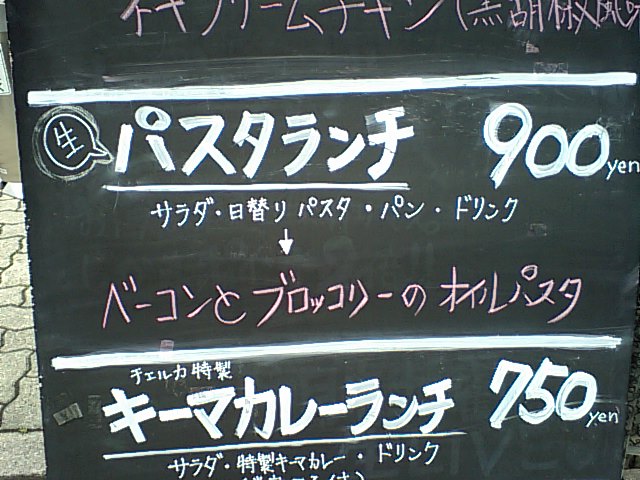 ネギクリームチキン(黒胡椒風味
生 パスタランチ 900yen
サラダ・日替り パスタ・パン・ドリンク
↓
ベーコンとブロッコリーの オイルパスタ
チェルカ 特製
キーマカレーランチ 750yen
サラダ・特製キーマカレー・ドリンク